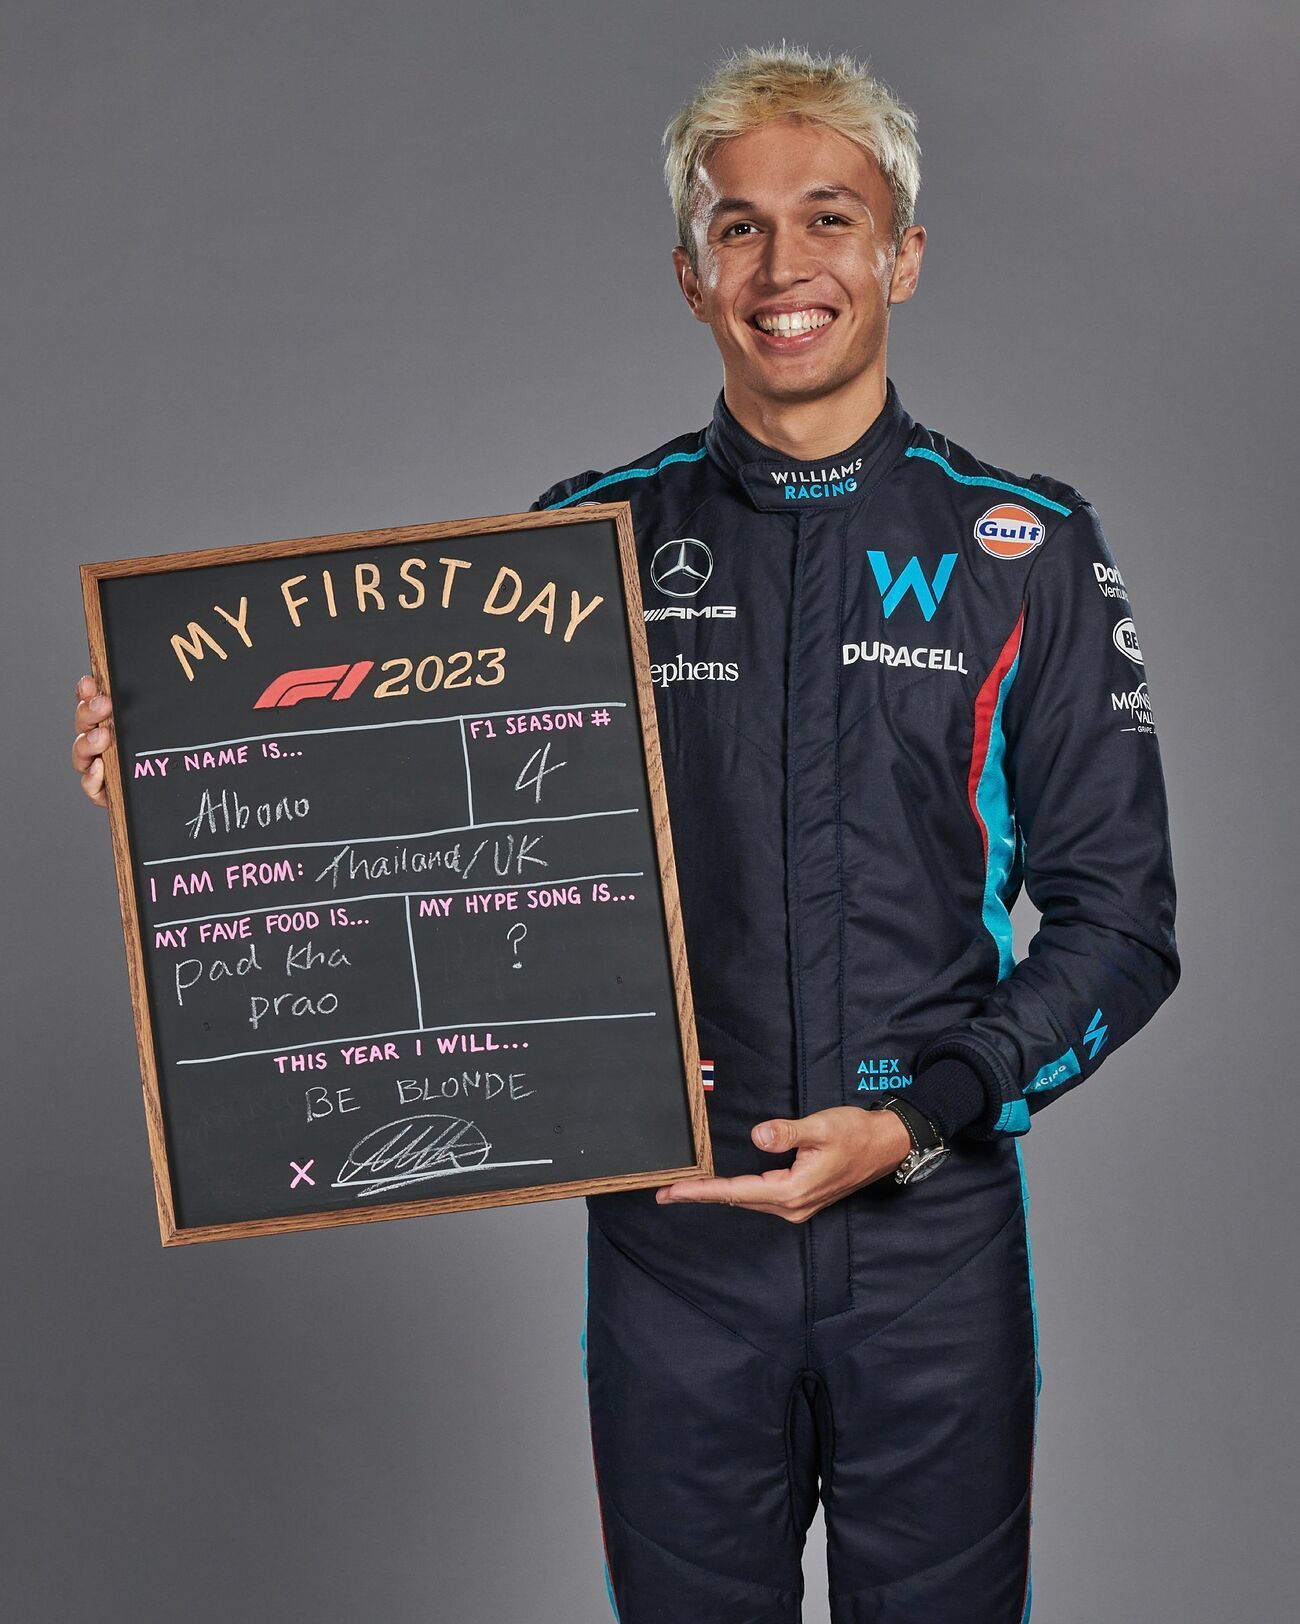 MY FIRST DAY
F1 2023
MY NAME IS...
Albono
F1 SEASON #
4
I AM FROM: Thailand/UK
MY FAVE FOOD IS...
Pad kha
prao
MY HYPE SONG IS...
?
THIS YEAR I WILL...
BE BLONDE
X
WILLIAMS
RACING
Gulf
AMG
ephens
W
DURACELL
ALEX
ALBON
BE
MONS
VAL
RACING